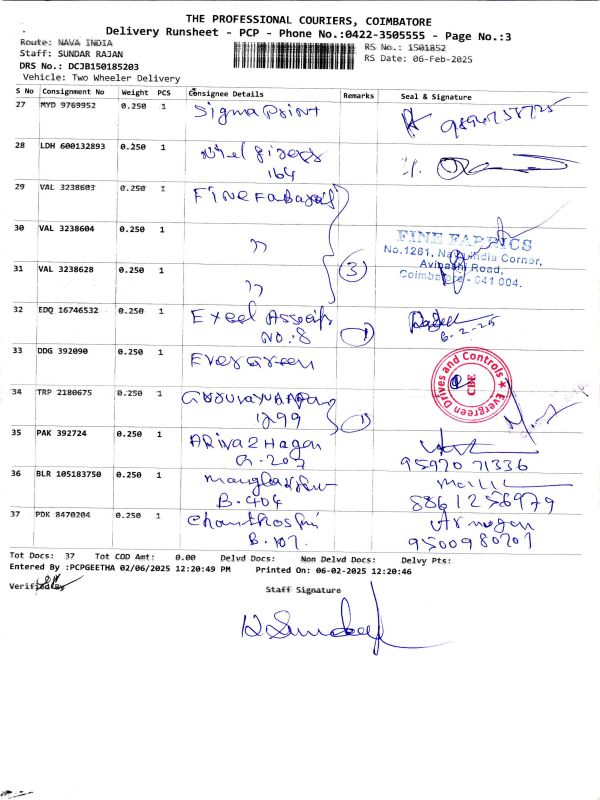 THE PROFESSIONAL COURIERS, COIMBATORE
Delivery Runsheet - PCP - Phone No.:0422-3505555 - Page No.:3
Route: NAVA INDIA
RS No.: 1501852
Staff: SUNDAR RAJAN
RS Date: 06-Feb-2025
DRS No.: DCJB150185203
Vehicle: Two Wheeler Delivery
S No Consignment No Weight PCS Consignee Details Remarks Seal & Signature
27 MYD 9769952 0.250 1 Sigma Print
28 LDH 600132893 0.250 1
164
29 VAL 3238603 0.250 1 Fine
30 VAL 3238604 0.250 1 "
FINE FABRICS
No.1261, Nava India Corner,
31 VAL 3238628 0.250 1 " 3
Avinashi Road,
Coimbatore - 641 004.
32 EDQ 16746532 0.250 1 Excel
NO.:8 1 6-2-25
33 DDG 392090 0.250 1 Evergreen
Evergreen Drives and Controls ★ CBE
34 TRP 2180675 0.250 1
1299 1
35 PAK 392724 0.250 1
95970 71336
36 BLR 105183750 0.250 1
B-404 8861256979
37 PDK 8470204 0.250 1
B-107
Tot Docs: 37 Tot COD Amt: 0.00 Delvd Docs: Non Delvd Docs: Delvy Pts:
Entered By :PCPGEETHA 02/06/2025 12:20:49 PM Printed On: 06-02-2025 12:20:46
Verified By
Staff Signature